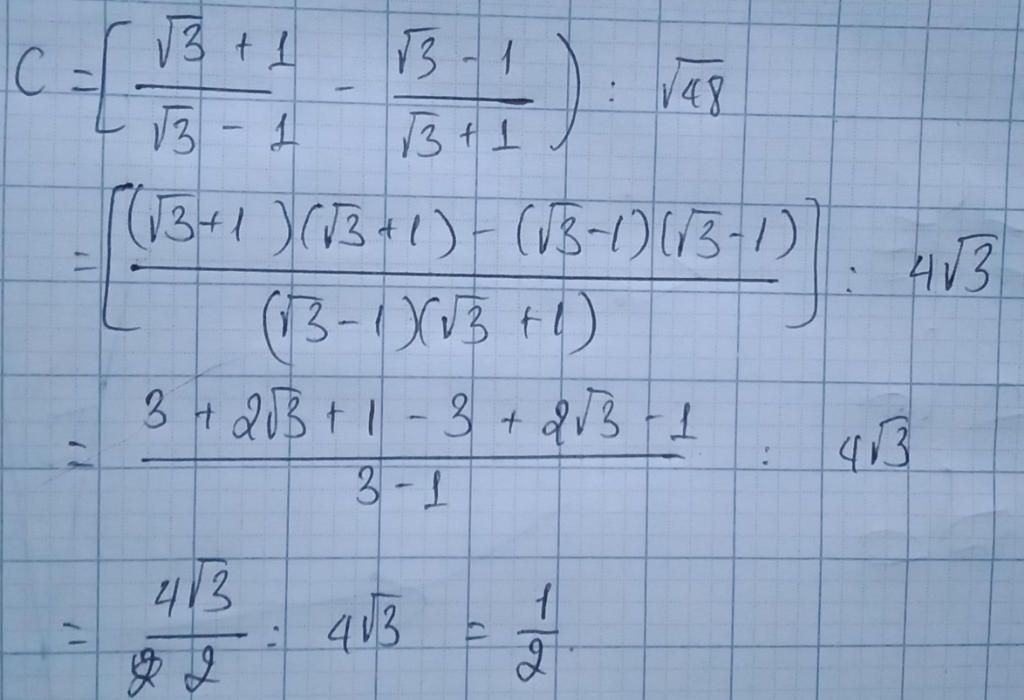 C = [ (√3 + 1)/(√3 - 1) - (√3 - 1)/(√3 + 1) ) : √48
= [ ((√3 + 1)(√3 + 1) - (√3 - 1)(√3 - 1))/((√3 - 1)(√3 + 1)) ] : 4√3
= (3 + 2√3 + 1 - 3 + 2√3 - 1)/(3 - 1) : 4√3
= 4√3/2 : 4√3 = 1/2.